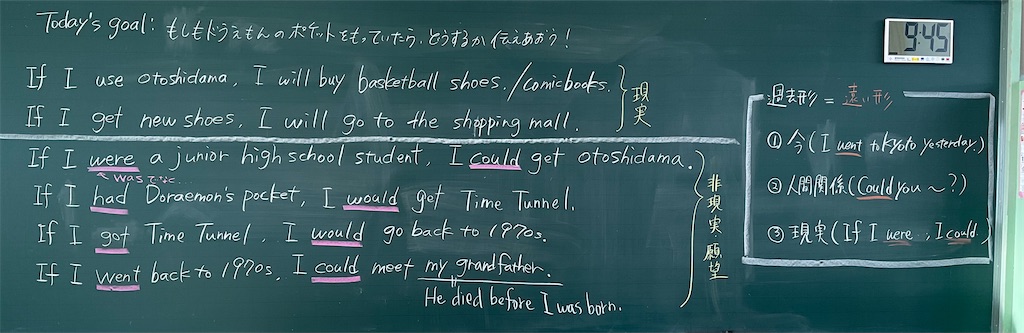 Today's goal: もしもドラえもんのポケットをもっていたら、どうするか伝えあおう!
9:45
If I use otoshidama, I will buy basketball shoes./comicbooks.
If I get new shoes, I will go to the shopping mall.
現実
If I were a junior high school student, I could get otoshidama.
If I had Doraemon's pocket, I would get Time Tunnel.
If I got Time Tunnel, I would go back to 1970s.
If I went back to 1970s, I could meet my grandfather.
He died before I was born.
非現実・願望
過去形 = 遠い形
① 今(I went to Kyoto yesterday.)
② 人間関係(Could you ~?)
③ 現実(If I were..., I could.)